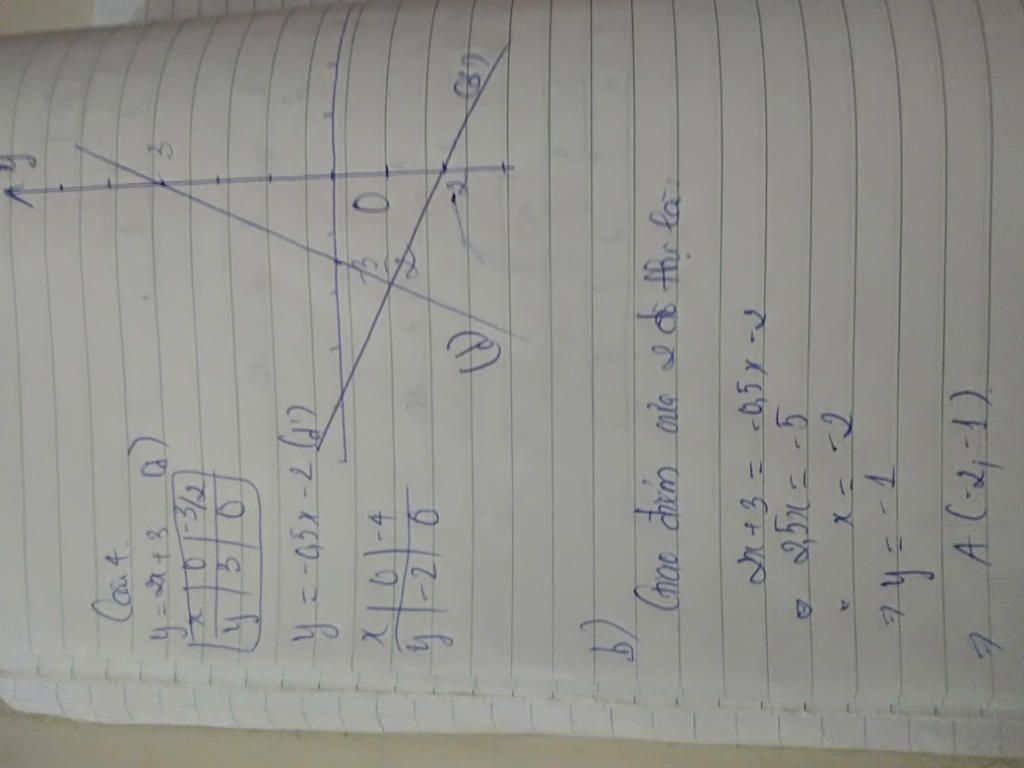 Câu 4.
y = 2x + 3 (d)
x | 0 | -3/2
y | 3 | 0
y = -0,5x - 2 (d')
x | 0 | -4
y | -2 | 0
y
3
O
-3
2
-2
(d)
(d')
b)
Giao điểm của 2 đồ thị là:
2x + 3 = -0,5x - 2
2,5x = -5
x = -2
⇒ y = -1
⇒ A (-2, -1)